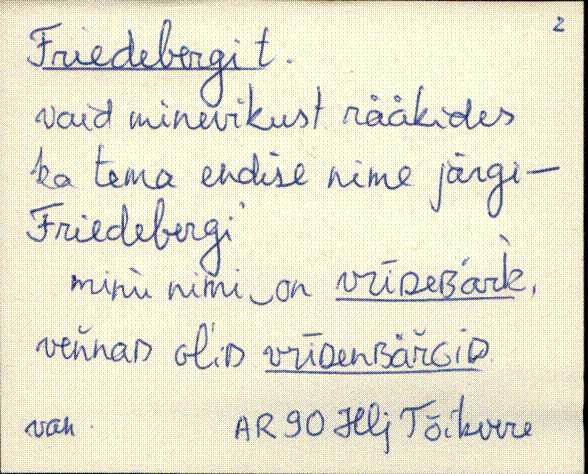 2
Friedebergi t.
vaid minevikust rääkides
ka tema endise nime järgi –
Friedebergi
minu nimi‿on vrīDeBärk,
veňnaD oľiD vrīDenBäřGiD.
van. AR 90 Hlj Tõikvere